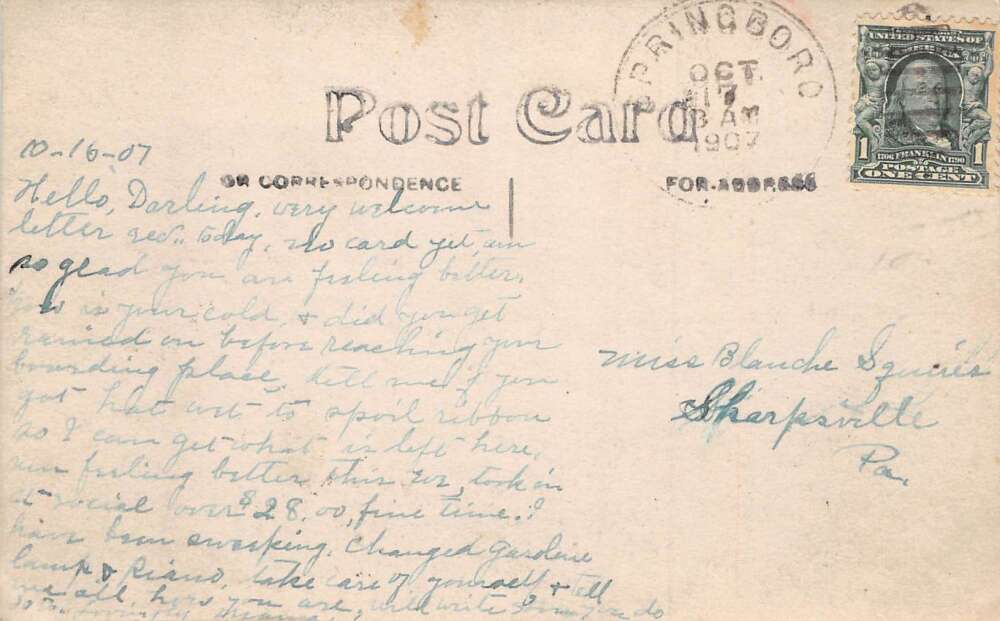 SPRINGBORO
OCT.
17
8 AM
1907
UNITED STATES OF
1706 FRANKLIN 1790
1 POSTAGE 1
ONE CENT
Post Card
OR CORRESPONDENCE
FOR ADDRESS
10-16-07
Hello, Darling, very welcome
letter rec.. today, no card yet, am
so glad you are feeling better.
how is your cold, & did you get
rained on before reaching your
boarding place, tell me if you
got hat wet to spoil ribbon
so I can get what is left here.
am feeling better this eve, took in
at social over $28.00, fine time. I
have been sweeping. Changed
lamp & Piano, take care of yourself & tell
me all, how you are, will write
Miss Blanche Squires
Sharpsville
Pa.